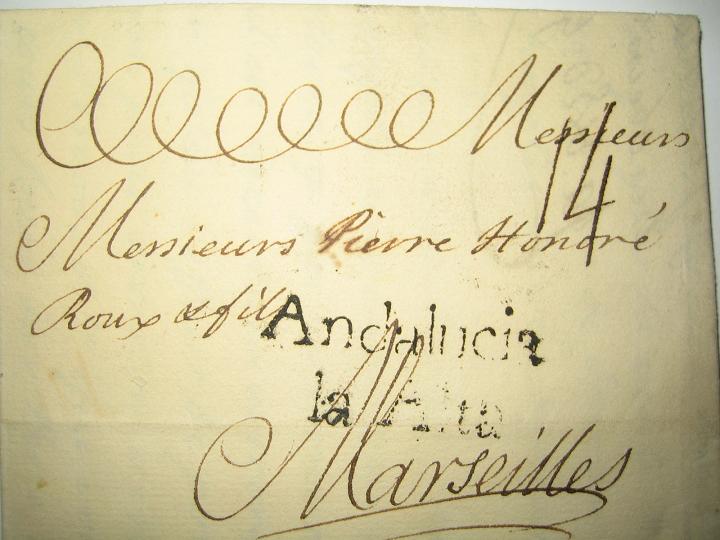 Messieurs
14
Messieurs Pierre Honoré
Roux & fils
Andalucia
la Alta
Marseilles